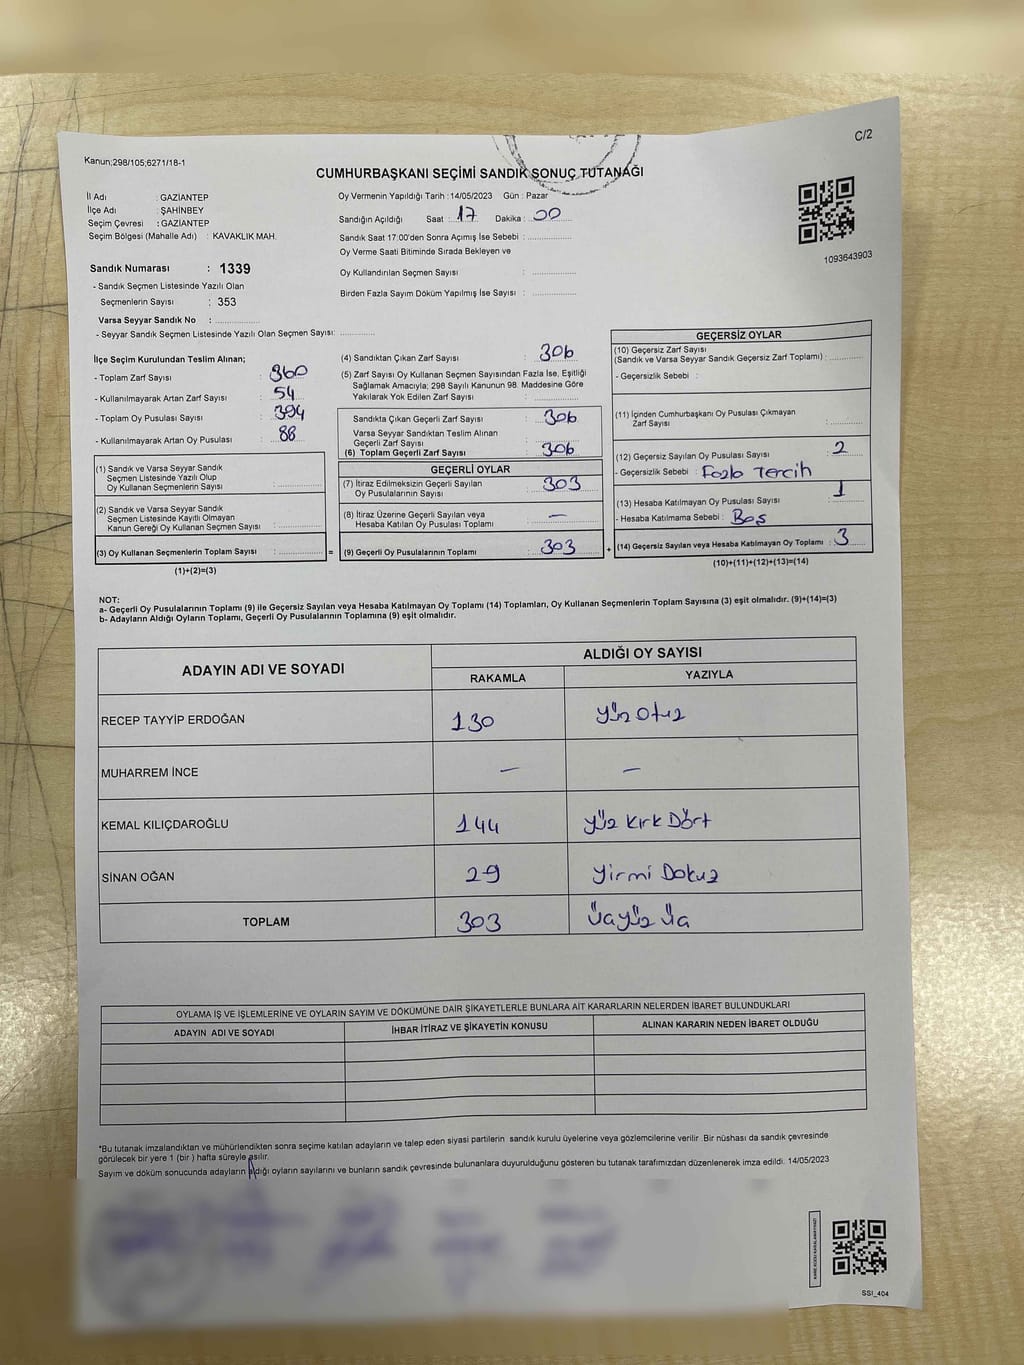 C/2
Kanun;298/105;6271/18-1
CUMHURBAŞKANI SEÇİMİ SANDIK SONUÇ TUTANAĞI
İl Adı : GAZİANTEP
İlçe Adı : ŞAHİNBEY
Seçim Çevresi : GAZİANTEP
Seçim Bölgesi (Mahalle Adı) : KAVAKLIK MAH.
Oy Vermenin Yapıldığı Tarih :14/05/2023 Gün : Pazar
Sandığın Açıldığı Saat : 17 Dakika : 00
Sandık Saat 17:00'den Sonra Açımış İse Sebebi :
Oy Verme Saati Bitiminde Sırada Bekleyen ve
Oy Kullandırılan Seçmen Sayısı :
Birden Fazla Sayım Döküm Yapılmış İse Sayısı :
1093643903
Sandık Numarası : 1339
- Sandık Seçmen Listesinde Yazılı Olan
Seçmenlerin Sayısı : 353
Varsa Seyyar Sandık No :
- Seyyar Sandık Seçmen Listesinde Yazılı Olan Seçmen Sayısı:
İlçe Seçim Kurulundan Teslim Alınan;
- Toplam Zarf Sayısı : 360
- Kullanılmayarak Artan Zarf Sayısı : 54
- Toplam Oy Pusulası Sayısı : 394
- Kullanılmayarak Artan Oy Pusulası : 88
(1) Sandık ve Varsa Seyyar Sandık
Seçmen Listesinde Yazılı Olup
Oy Kullanan Seçmenlerin Sayısı :
(2) Sandık ve Varsa Seyyar Sandık
Seçmen Listesinde Kayıtlı Olmayan
Kanun Gereği Oy Kullanan Seçmen Sayısı :
(3) Oy Kullanan Seçmenlerin Toplam Sayısı : =
(1)+(2)=(3)
(4) Sandıktan Çıkan Zarf Sayısı : 306
(5) Zarf Sayısı Oy Kullanan Seçmen Sayısından Fazla İse, Eşitliği
Sağlamak Amacıyla; 298 Sayılı Kanunun 98. Maddesine Göre
Yakılarak Yok Edilen Zarf Sayısı :
Sandıkta Çıkan Geçerli Zarf Sayısı : 306
Varsa Seyyar Sandıktan Teslim Alınan
Geçerli Zarf Sayısı :
(6) Toplam Geçerli Zarf Sayısı : 306
GEÇERLİ OYLAR
(7) İtiraz Edilmeksizin Geçerli Sayılan
Oy Pusulalarının Sayısı : 303
(8) İtiraz Üzerine Geçerli Sayılan veya
Hesaba Katılan Oy Pusulası Toplamı : —
(9) Geçerli Oy Pusulalarının Toplamı : 303 +
GEÇERSİZ OYLAR
(10) Geçersiz Zarf Sayısı
(Sandık ve Varsa Seyyar Sandık Geçersiz Zarf Toplamı) :
- Geçersizlik Sebebi :
(11) İçinden Cumhurbaşkanı Oy Pusulası Çıkmayan
Zarf Sayısı :
(12) Geçersiz Sayılan Oy Pusulası Sayısı : 2
- Geçersizlik Sebebi : Fazla Tercih
(13) Hesaba Katılmayan Oy Pusulası Sayısı : 1
- Hesaba Katılmama Sebebi : Boş
(14) Geçersiz Sayılan veya Hesaba Katılmayan Oy Toplamı : 3
(10)+(11)+(12)+(13)=(14)
NOT:
a- Geçerli Oy Pusulalarının Toplamı (9) ile Geçersiz Sayılan veya Hesaba Katılmayan Oy Toplamı (14) Toplamları, Oy Kullanan Seçmenlerin Toplam Sayısına (3) eşit olmalıdır. (9)+(14)=(3)
b- Adayların Aldığı Oyların Toplamı, Geçerli Oy Pusulalarının Toplamına (9) eşit olmalıdır.
ADAYIN ADI VE SOYADI ALDIĞI OY SAYISI
RAKAMLA YAZIYLA
RECEP TAYYİP ERDOĞAN 130 Yüz Otuz
MUHARREM İNCE — —
KEMAL KILIÇDAROĞLU 144 Yüz Kırk Dört
SİNAN OĞAN 29 Yirmi Dokuz
TOPLAM 303 Üçyüz Üç
OYLAMA İŞ VE İŞLEMLERİNE VE OYLARIN SAYIM VE DÖKÜMÜNE DAİR ŞİKAYETLERLE BUNLARA AİT KARARLARIN NELERDEN İBARET BULUNDUKLARI
ADAYIN ADI VE SOYADI İHBAR İTİRAZ VE ŞİKAYETİN KONUSU ALINAN KARARIN NEDEN İBARET OLDUĞU
*Bu tutanak imzalandıktan ve mühürlendikten sonra seçime katılan adayların ve talep eden siyasi partilerin sandık kurulu üyelerine veya gözlemcilerine verilir. Bir nüshası da sandık çevresinde
görülecek bir yere 1 (bir ) hafta süreyle asılır.
Sayım ve döküm sonucunda adayların aldığı oyların sayılarını ve bunların sandık çevresinde bulunanlara duyurulduğunu gösteren bu tutanak tarafımızdan düzenlenerek imza edildi. 14/05/2023
SSI_404